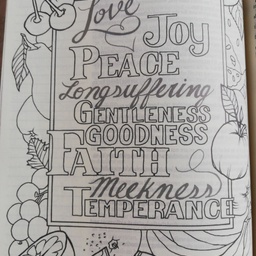 Love
Joy
PEACE
Longsuffering
GENTLENESS
GOODNESS
FAITH
Meekness
TEMPERANCE